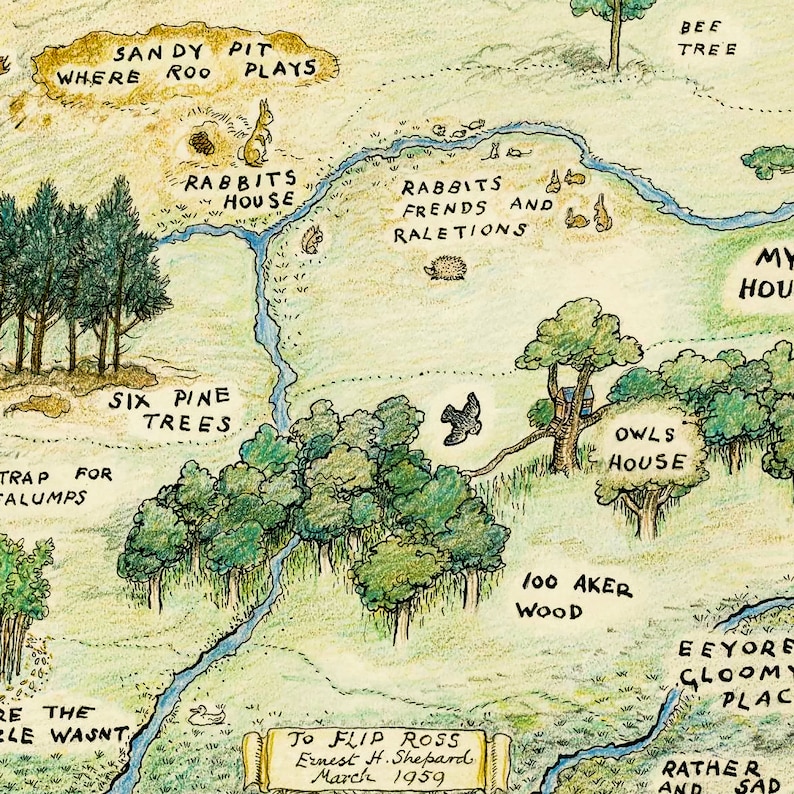 BEE
TREE
SANDY PIT
WHERE ROO PLAYS
RABBITS
HOUSE
RABBITS
FRENDS AND
RALETIONS
MY
HOU
SIX PINE
TREES
OWLS
HOUSE
TRAP FOR
FALUMPS
100 AKER
WOOD
EEYORE
GLOOMY
PLAC
RE THE
ZLE WASNT
TO FLIP ROSS
Ernest H. Shepard
March 1959
RATHER
AND SAD